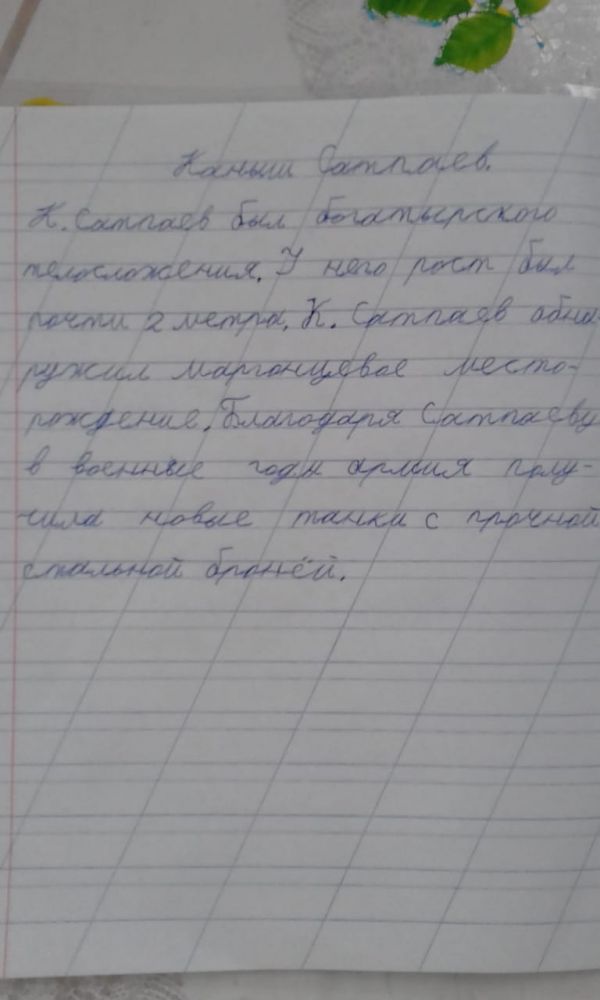 Каныш Сатпаев.
К. Сатпаев был богатырского
телосложения. У него рост был
почти 2 метра. К. Сатпаев обна-
ружил марганцевое место-
рождение. Благодаря Сатпаеву
в военные годы армия полу-
чила новые танки с прочной
стальной бронёй.